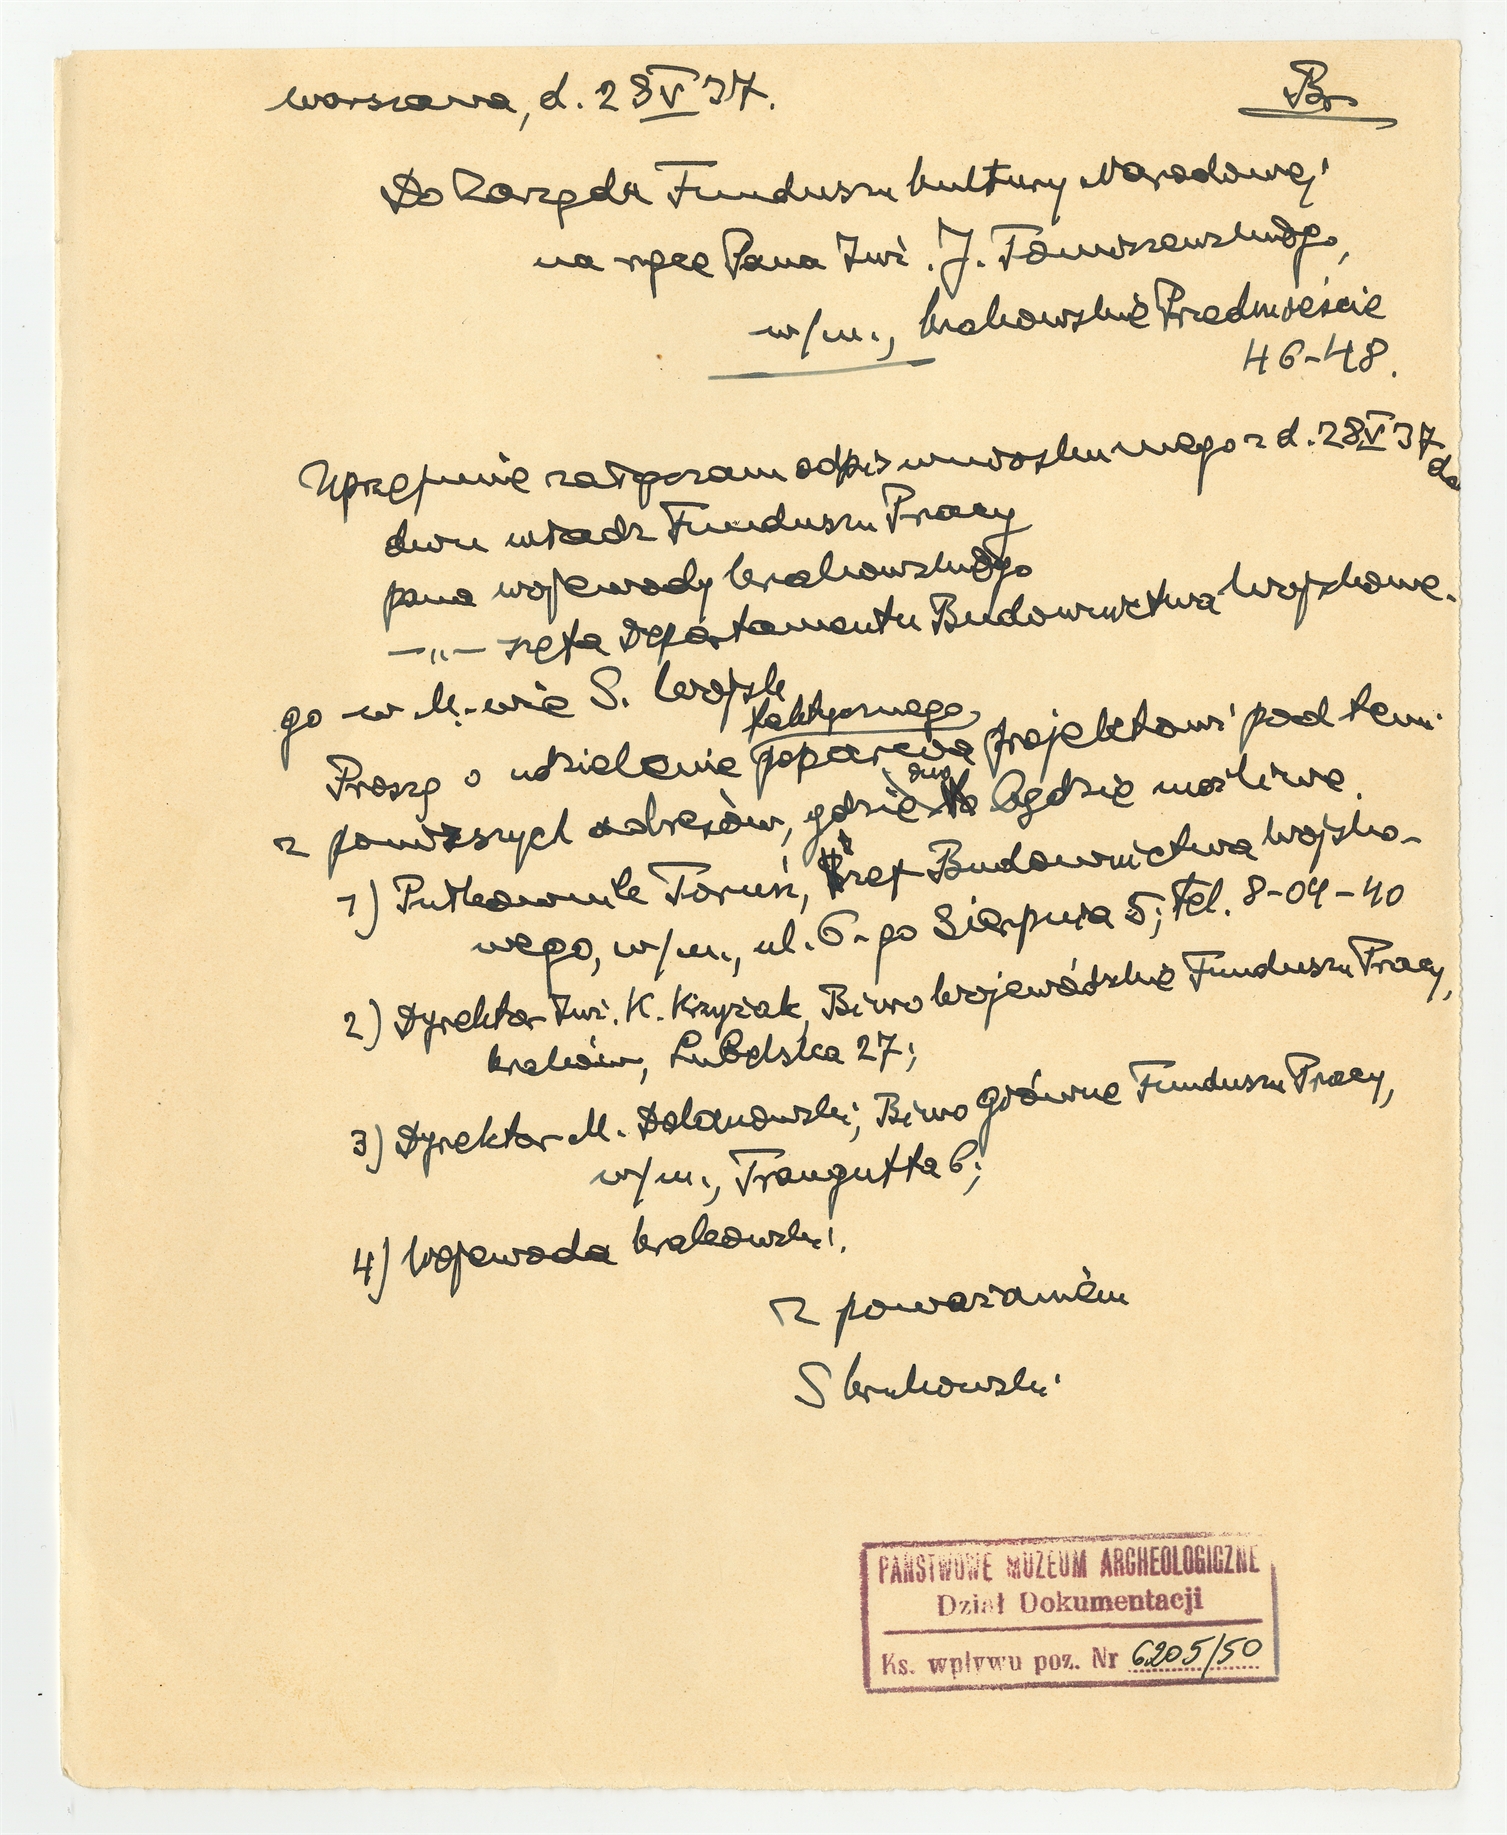 Warszawa, d. 28 V 37.
Br
Do Zarządu Funduszu Kultury Narodowej
na ręce Pana Inż. J. Tomiszewskiego,
w/m., Krakowskie Przedmieście
46-48.
Uprzejmie załączam odpis wniosku mego z d. 28 V 37 do
dwu władz Funduszu Pracy
pana wojewody krakowskiego
—„— szefa Departamentu Budownictwa Wojskowe-
go w M.-wie S. Wojsk
taktycznego
Proszę o udzielenie poparcia projektowi pod temi
z powyższych adresów, gdzie ono będzie możliwe.
1) Pułkownik Toruń, Szef Budownictwa Wojsko-
wego, w/m., ul. 6-go Sierpnia 5; tel. 8-04-40
2) Dyrektor Inż. K. Krzyżak, Biuro Wojewódzkie Funduszu Pracy,
Kraków, Lubelska 27;
3) Dyrektor M. Dolanowski, Biuro Główne Funduszu Pracy,
w/m., Traugutta 6;
4) Wojewoda krakowski.
Z poważaniem
S Krukowski
PAŃSTWOWE MUZEUM ARCHEOLOGICZNE
Dział Dokumentacji
Ks. wpływu poz. Nr 6205/50